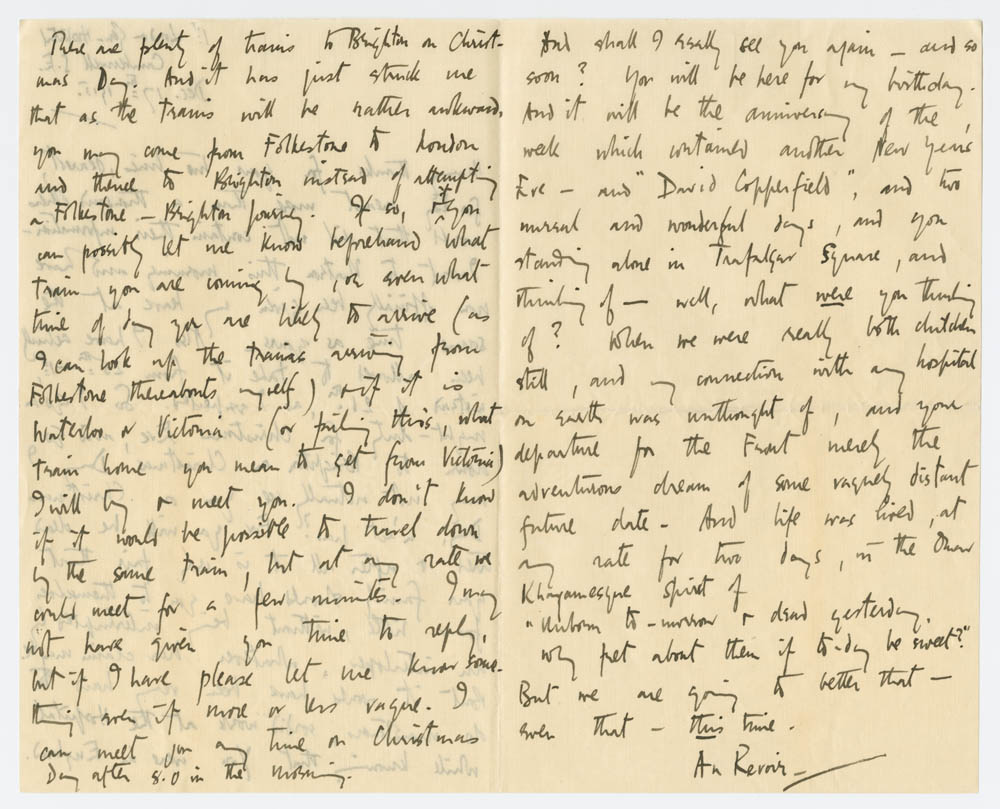 There are plenty of trains to Brighton on Christ-
mas Day. And it has just struck me
that as the trains will be rather awkward,
you may come from Folkestone to London
and thence to Brighton instead of attempting
a Folkestone – Brighton journey. If so, if you
can possibly let me know beforehand what
train you are coming by, or even what
time of day you are likely to arrive (as
I can look up the trains arriving from
Folkestone thereabouts myself) & if it is
Waterloo or Victoria (or failing this, what
train home you mean to get from Victoria)
I will try & meet you. I don't know
if it would be possible to travel down
by the same train, but at any rate we
could meet for a few minutes. I may
not have given you time to reply,
but if I have please let me know some-
thing even if more or less vague. I
can meet you any time on Christmas
Day after 8.0 in the morning.
And shall I really see you again – and so
soon? You will be here for my birthday.
And it will be the anniversary of the
week which contained another New Years
Eve – and "David Copperfield", and two
unreal and wonderful days, and you
standing alone in Trafalgar Square, and
thinking of – well, what were you thinking
of? When we were really both children
still, and my connection with any hospital
on earth was unthought of, and your
departure for the Front merely the
adventurous dream of some vaguely distant
future date – And life was lived, at
any rate for two days, in the Omar
Khayamesque spirit of
"Unborn to-morrow & dead yesterday,
Why fret about them if to-day be sweet?"
But we are going to better that –
even that – this time.
Au Revoir –